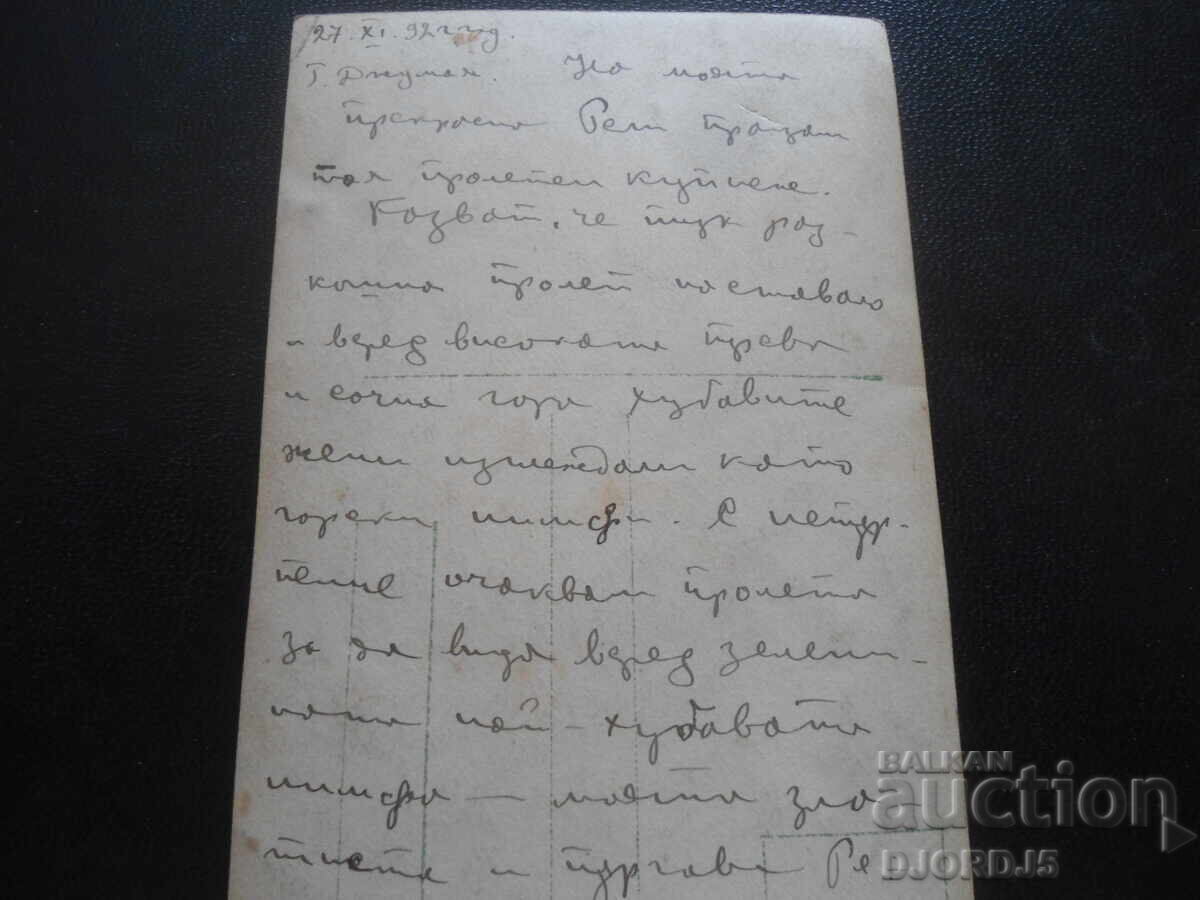 27. XI. 92 год.
Г. Джумая. На моята
прекрасна Рени пращам
тоя пролетен
Казват, че тук раз-
кошна пролет настъвало
и всред високата трева
и сочна гора хубавите
жени изглеждали като
горски нимфи. С нетър-
пение очаквам пролета
за да видя всред зелени-
ната най-хубавата
нимфа — моята зла-
тиста и
BALKAN
auction
DJORDJ5